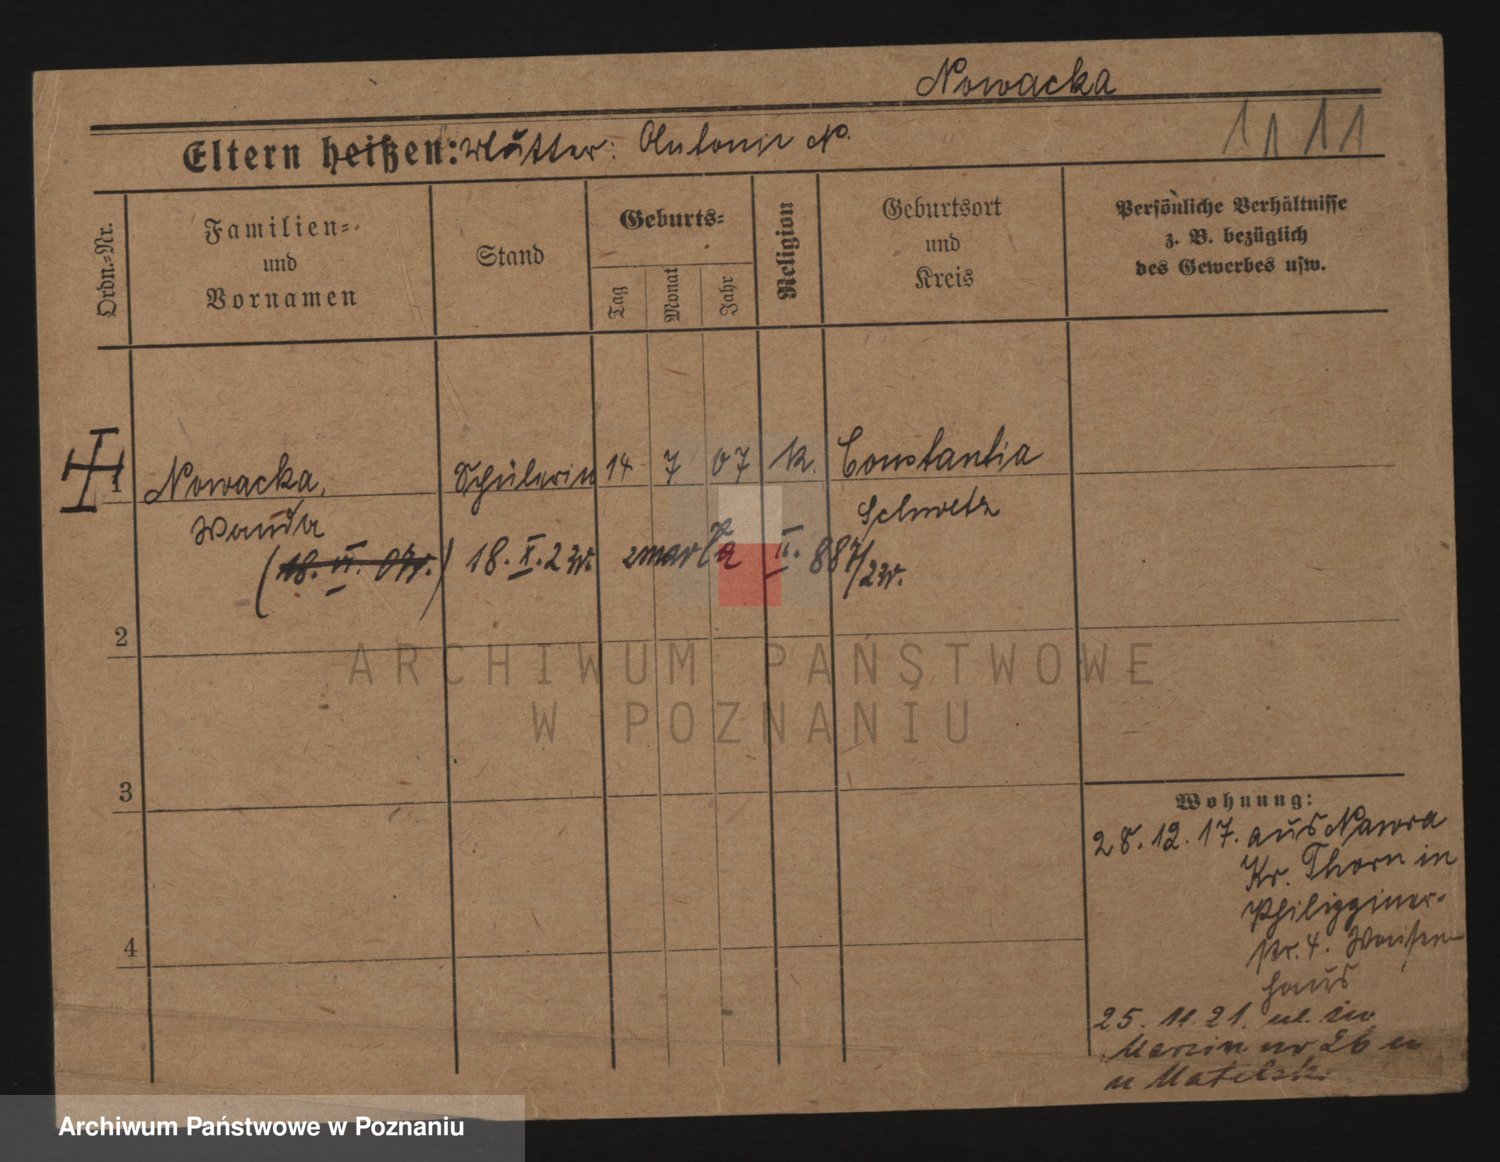 Nowacka
Eltern heißen: Mutter: Antonie N.
1 1 1 1
Ordn.=Nr.
Familien=
und
Vornamen
Stand
Geburts=
Tag
Monat
Jahr
Religion
Geburtsort
und
Kreis
Persönliche Verhältnisse
z. B. bezüglich
des Gewerbes usw.
1 Nowacka, Schülerin 14 7 07 k. Constantia
Wanda Schwetz
(18. VI. 07r.) 18. X. 2 zmarła II. 887/
2
3
4
Wohnung:
28. 12. 17. aus Nawra
Kr. Thorn in
Philippiner-
str. 4. Waisen
haus
25. 11 21. ul. św
Marcin nr 26
u
ARCHIWUM PAŃSTWOWE
W POZNANIU
Archiwum Państwowe w Poznaniu